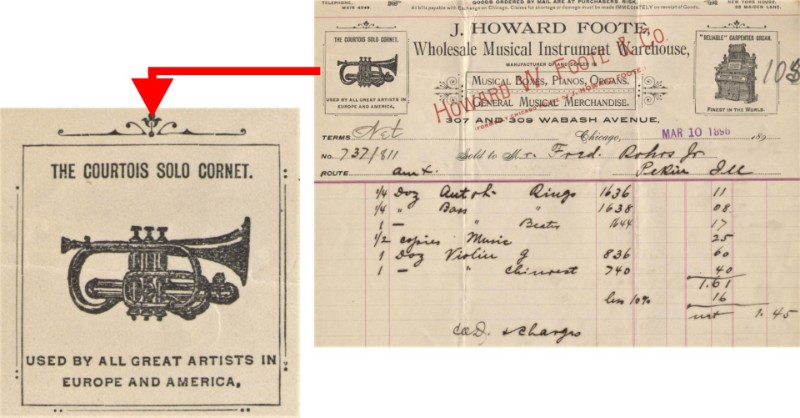 TELEPHONE,
GOODS ORDERED BY MAIL ARE AT PURCHASERS RISK.
NEW YORK HOUSE,
MAIN 4044
Bills payable with Exchange on Chicago. Claims for shortage or damage must be made IMMEDIATELY on receipt of Goods.
MAIDEN LANE.
J. HOWARD FOOTE,
Wholesale Musical Instrument Warehouse,
THE COURTOIS SOLO CORNET.
USED BY ALL GREAT ARTISTS IN EUROPE AND AMERICA.
MUSICAL BOXES, PIANOS, ORGANS,
GENERAL MUSICAL MERCHANDISE.
HOWARD W. FOOTE & CO.
"RELIABLE" CARPENTER ORGAN.
FINEST IN THE WORLD.
307 AND 309 WABASH AVENUE,
TERMS Net
Chicago, MAR 10 1898 189
No. 737/811 Sold to Mr. Fred. Rohrs Jr
ROUTE Pekin Ill
1/4 Doz Rings 1636 11
1/4 " Bass " 1638 08
1 — " 1644 17
1/2 copies Music 25
1 Doz Violin 836 60
1 — " 740 40
1.61
less 10% 16
net 1.45
COD. & charges
THE COURTOIS SOLO CORNET.
USED BY ALL GREAT ARTISTS IN
EUROPE AND AMERICA.